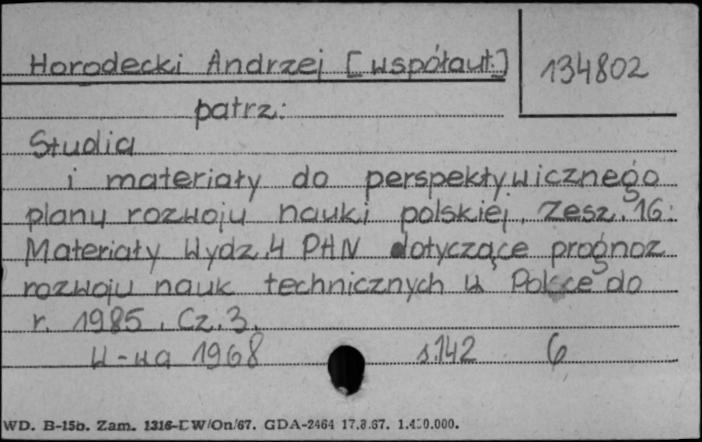 Horodecki Andrzej [współaut.]
134802
patrz:
Studia
i materiały do perspektywicznego
planu rozwoju nauki polskiej. Zesz. 16:
Materiały Wydz. 4 PAN dotyczące prognoz
rozwoju nauk technicznych w Polsce do
r. 1985. Cz. 3.
W-wa 1968 s. 142 6
WD. B-15b. Zam. 1316-DW/On/67. GDA-2464 17.8.67.